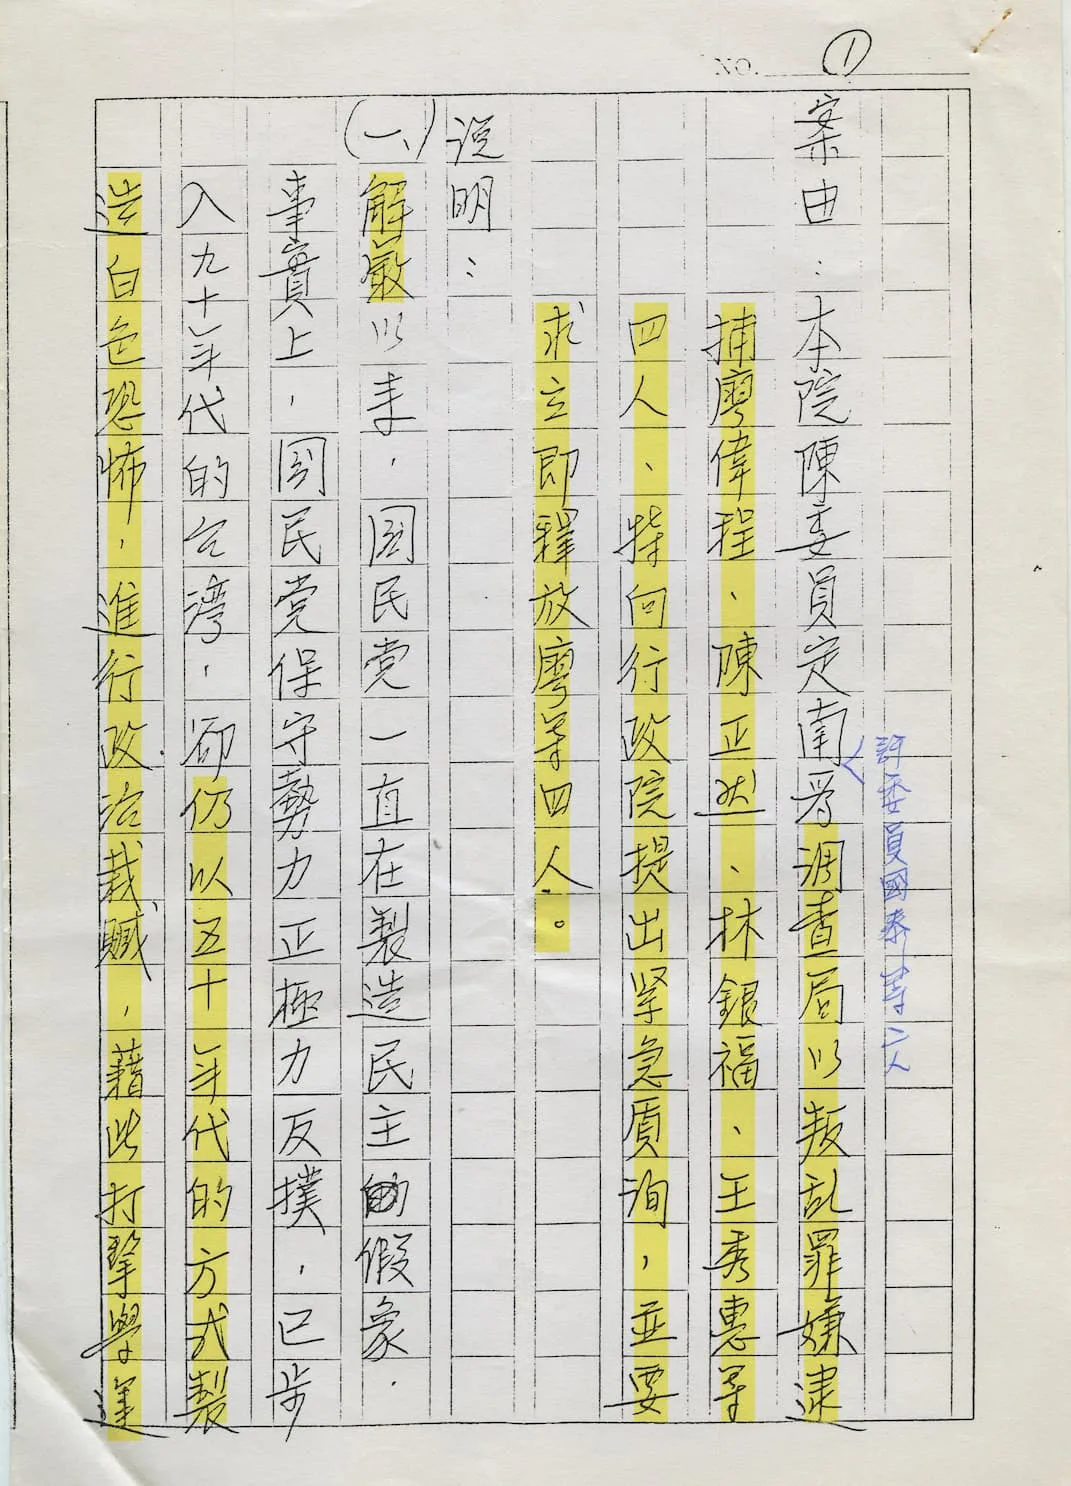 NO. ①
許委員國泰等二人
案由：本院陳委員定南為調查局以叛乱罪嫌逮
捕廖偉程、陳正然、林銀福、王秀惠等
四人、特向行政院提出緊急質詢，並要
求立即釋放廖等四人。
說明：
(一)解嚴以来，国民党一直在製造民主的假象．
事實上，国民党保守勢力正極力反撲，已步
入九十年代的台湾，卻仍以五十年代的方式製
造白色恐怖，進行政治栽贓，藉此打擊學運